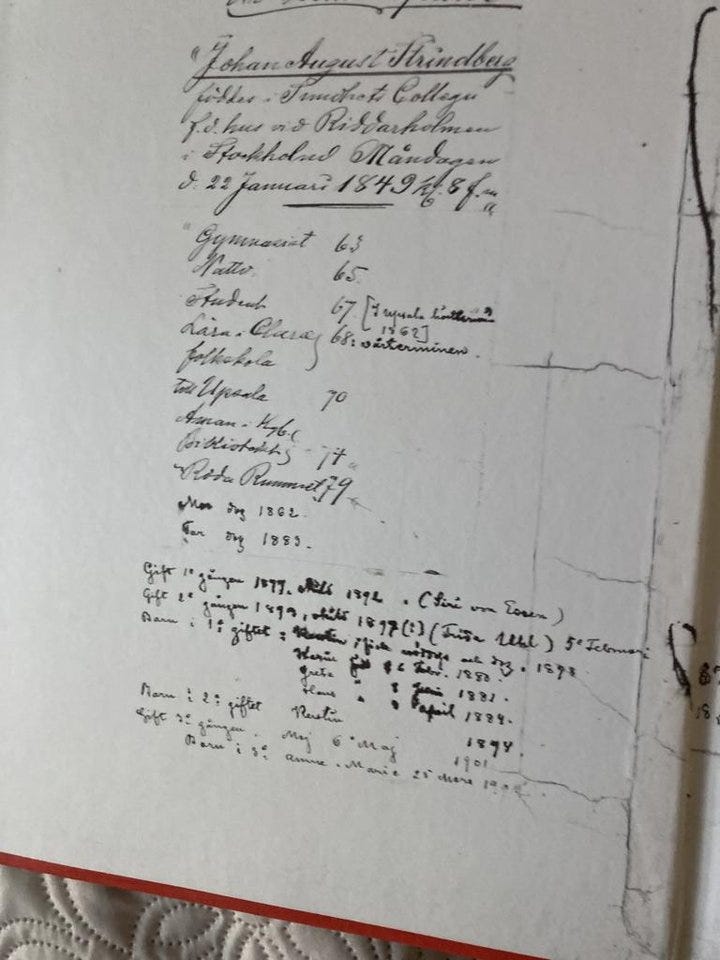 "Johan August Strindberg
föddes i Collegii
f.d. hus vid Riddarholmen
i Stockholm Måndagen
d. 22 Januari 1849 kl. 8 f.m."
"Gymnasist 63
65.
Student 67. [I Upsala höstterminen
1862]
Lära i Clara 68: vårterminen.
folkskola
till Upsala 70
Aman. i Kgl.
Bibliotek 74
"Röda Rummet" 79
Mor dog 1862.
Far dog 1883.
Gift 1a gången 1877. 1892. (Siri von Essen)
Gift 2a gången 1893, 1897(?) (Frida Uhl) 5e Februari
Barn i 1a giftet: Kerstin, och dog. 1878
Karin född 26 Febr. 1880.
Greta " 9 Juni 1881.
Hans " 3 April 1884.
Barn i 2a giftet Kerstin 1894.
Gift 3e gången. Maj 6e Maj 1901
Barn i 3e Anne-Marie 25 Mars 1902.